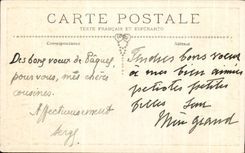 CARTE POSTALE
TEXTE FRANÇAIS ET ESPERANTO
Correspondance
Adresse
Des bons voeux de Pâques,
pour vous, mes chères
cousines.
Affectueusement
Serge
Tendres bons voeux
à mes bien aimées
petites petites
filles
Grand